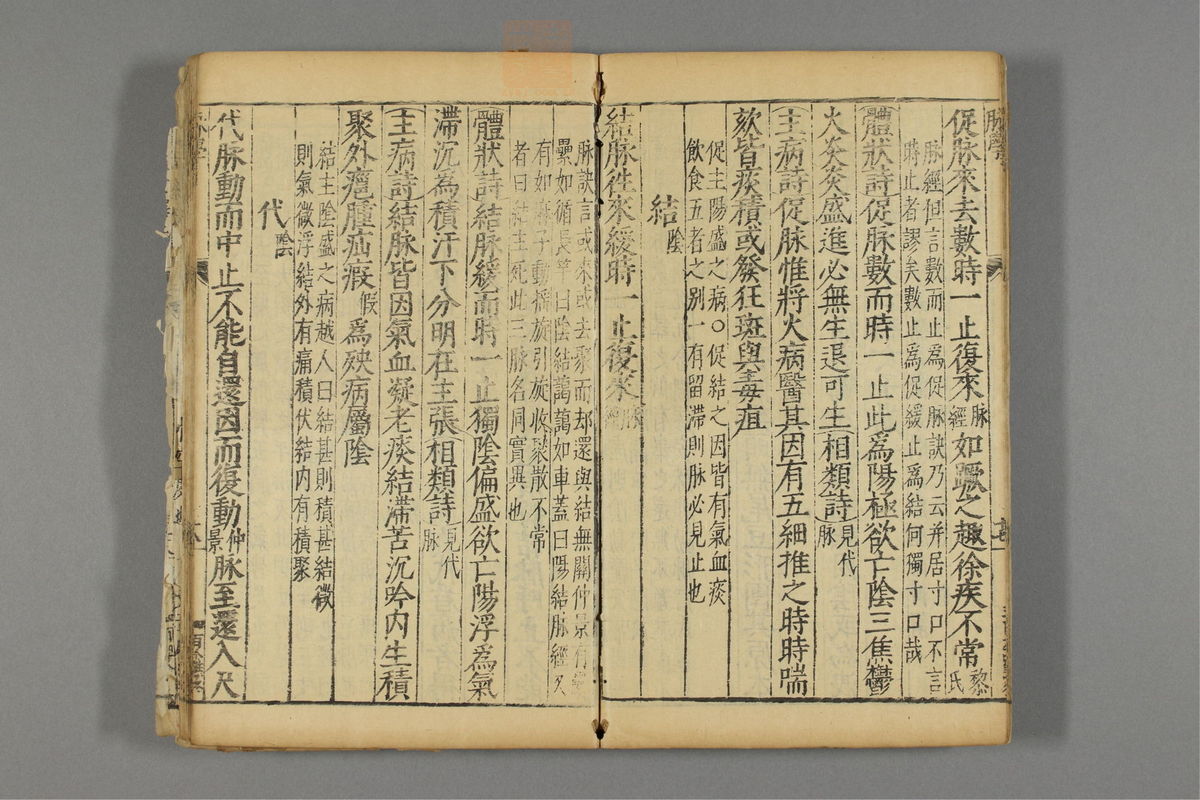 促脉來去數時一止復來脉經如蹶之趣徐疾不常黎氏
脉經但言數而止為促脉訣乃云并居寸口不言
時止者謬矣數止為促緩止為結何獨寸口哉
體狀詩促脉數而時一止此為陽極欲亡陰三焦鬱
火炎炎盛進必無生退可生相類詩見代脉
主病詩促脉惟將火病醫其因有五細推之時時喘
欬皆痰積或發狂斑與毒疽
促主陽盛之病○促結之因皆有氣血痰
飲食五者之别一有留滯則脉必見止也
結陰
結脉徃來緩時一止復來脉經
脉訣言或來或去聚而却還與結無關仲景有
纍如循長竿曰陰結藹藹如車蓋曰陽結脉經又
有如麻子動揺旋引旋收聚散不常
者曰結主死此三脉名同實異也
體狀詩結脉緩而時一止獨陰偏盛欲亡陽浮為氣
滯沉為積汗下分明在主張相類詩見代脉
主病詩結脉皆因氣血凝老痰結滯苦沉吟内生積
聚外癰腫疝瘕假為殃病屬陰
結主陰盛之病越人曰結甚則積甚結微
則氣微浮結外有痛積伏結内有積聚
代陰
代脉動而中止不能自還因而復動仲景脉至還入尺